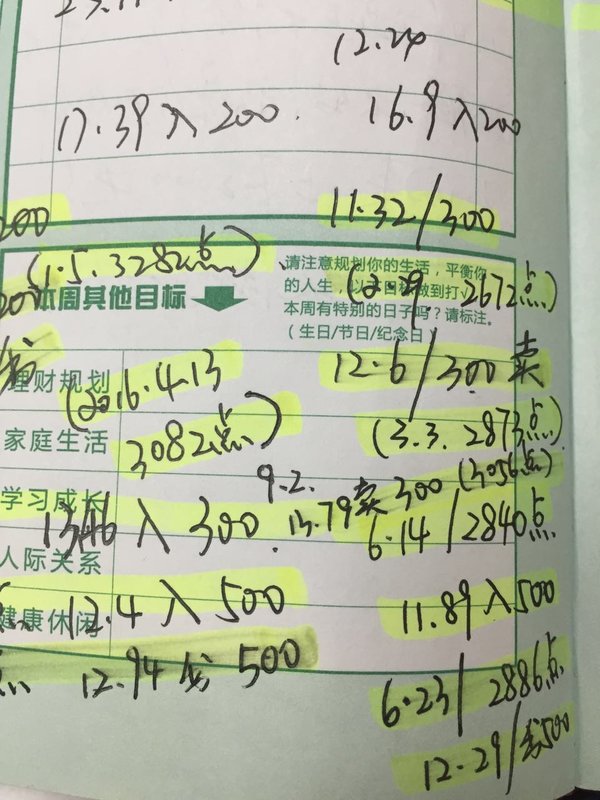 12.24
17.39入200.
16.9入200
200
11.32/300
(1.5.3282点)
请注意规划你的生活，平衡你
的人生，以
做到打
本周有特别的日子吗？请标注。
（生日/节日/纪念日）
本周其他目标
2672点)
12.6/300卖
理财规划
(2016.4.13
3082点)
(3.3.2873点)
家庭生活
9.2.
13.79卖300(3056点)
学习成长
入300.
6.14/2840点
人际关系
12.4入500
11.89入500
健康休闲
点
12.94
500
6.23/2886点
12.29/
500